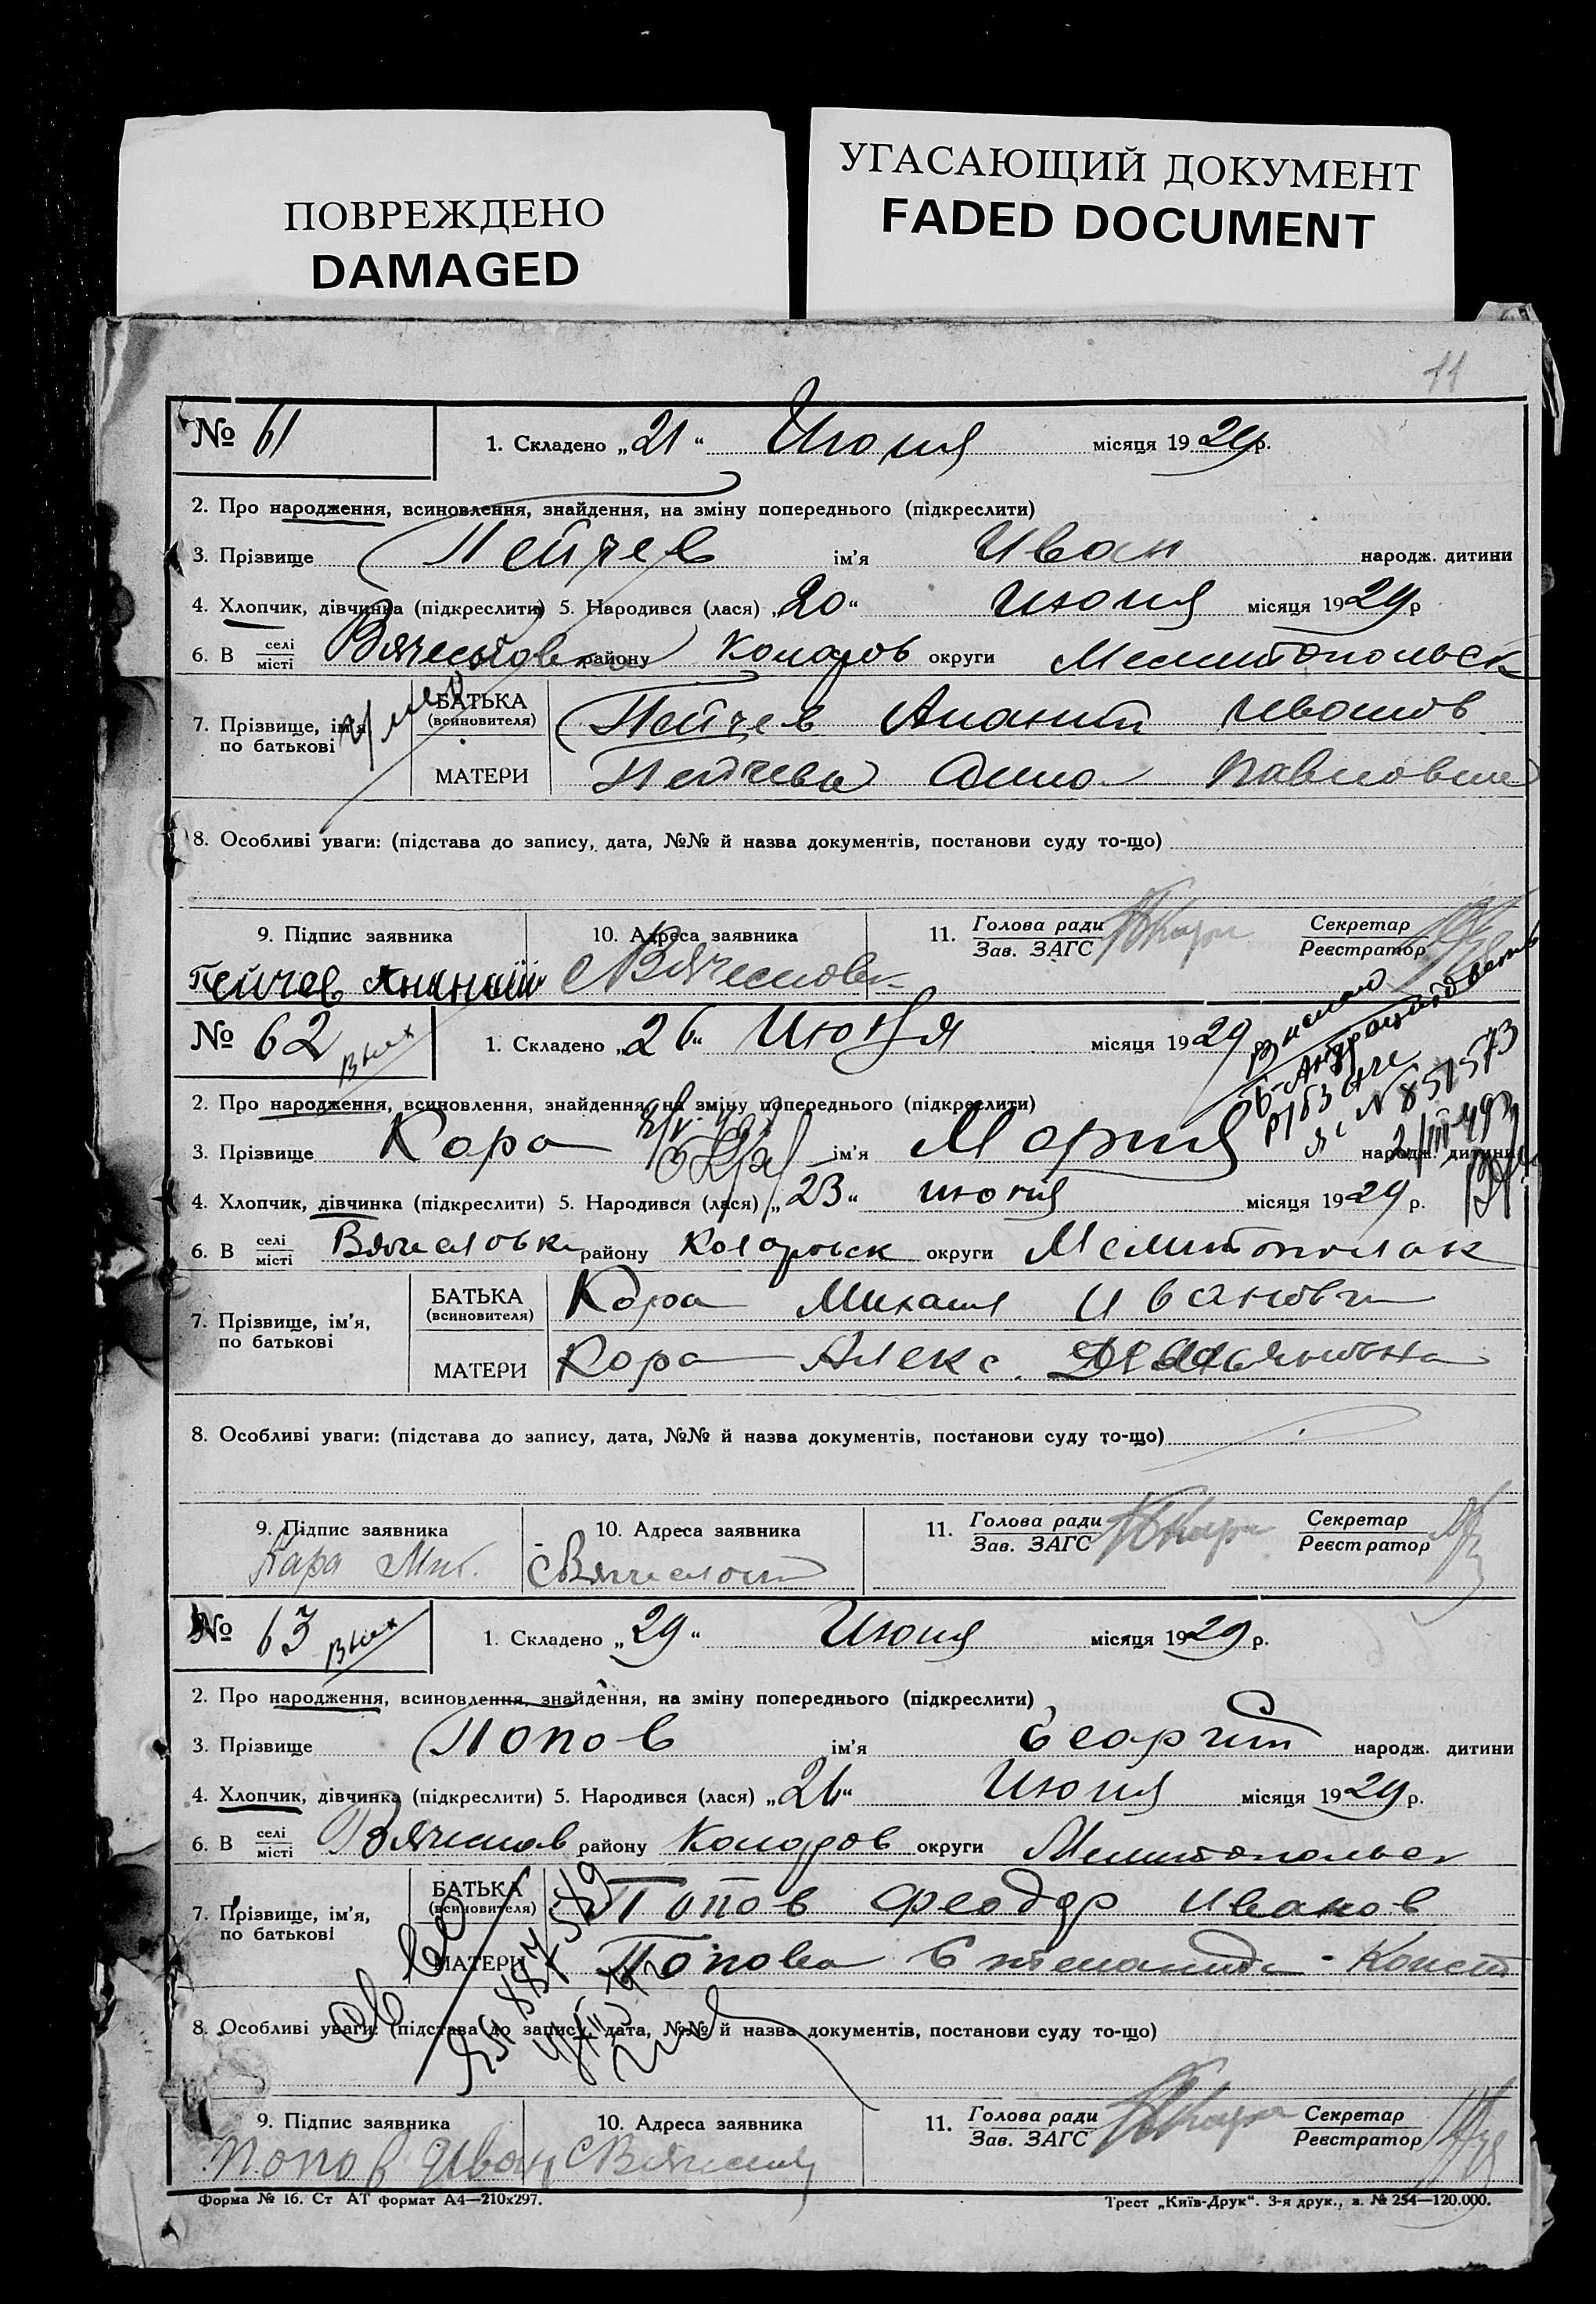 ПОВРЕЖДЕНО
DAMAGED
УГАСАЮЩИЙ ДОКУМЕНТ
FADED DOCUMENT
11
№ 61
1. Складено „21“ Июня місяця 1929р.
2. Про народження, всиновлення, знайдення, на зміну попереднього (підкреслити)
3. Прізвище Пейчев ім'я Иван народж. дитини
4. Хлопчик, дівчинка (підкреслити) 5. Народився (лася) „20“ Июня місяця 1929р
6. В селі місті Вячесловка району Коларов округи Мелитопольск
7. Прізвище, ім'я по батькові
БАТЬКА (всиновителя) Пейчев Ананий Иванов
МАТЕРИ Пейчева Анна Павловна
8. Особливі уваги: (підстава до запису, дата, №№ й назва документів, постанови суду то-що)
9. Підпис заявника
10. Адреса заявника
11. Голова ради Зав. ЗАГС
Секретар Реєстратор
Пейчев Ананий с Вячесловк
№ 62 Выех
1. Складено „26“ Июня місяця 1929
2. Про народження, всиновлення, знайдення, на зміну попереднього (підкреслити)
3. Прізвище Кара ім'я Мария народж. дитини
№ 851573
4. Хлопчик, дівчинка (підкреслити) 5. Народився (лася) „23“ июня місяця 1929 р.
6. В селі місті Вячесловка району Коларовск округи Мелитополск
7. Прізвище, ім'я, по батькові
БАТЬКА (всиновителя) Кара Михаил Иванович
МАТЕРИ Кара Алекс.
8. Особливі уваги: (підстава до запису, дата, №№ й назва документів, постанови суду то-що)
9. Підпис заявника
10. Адреса заявника
11. Голова ради Зав. ЗАГС
Секретар Реєстратор
Кара Мих. с Вячеслов
№ 63 Выех
1. Складено „29“ Июня місяця 1929 р.
2. Про народження, всиновлення, знайдення, на зміну попереднього (підкреслити)
3. Прізвище Попов ім'я Георгий народж. дитини
4. Хлопчик, дівчинка (підкреслити) 5. Народився (лася) „26“ Июня місяця 1929 р.
6. В селі місті Вячеслов району Коларов округи Мелитопольск
7. Прізвище, ім'я, по батькові
БАТЬКА (всиновителя) Попов Феодор Иванов
МАТЕРИ Попова Конст
8. Особливі уваги: (підстава до запису, дата, №№ й назва документів, постанови суду то-що)
9. Підпис заявника
10. Адреса заявника
11. Голова ради Зав. ЗАГС
Секретар Реєстратор
Попов Иван с Вячеслов
Форма № 16. Ст АТ формат А4—210х297.
Трест „Київ-Друк“. 3-я друк., з. № 254—120.000.